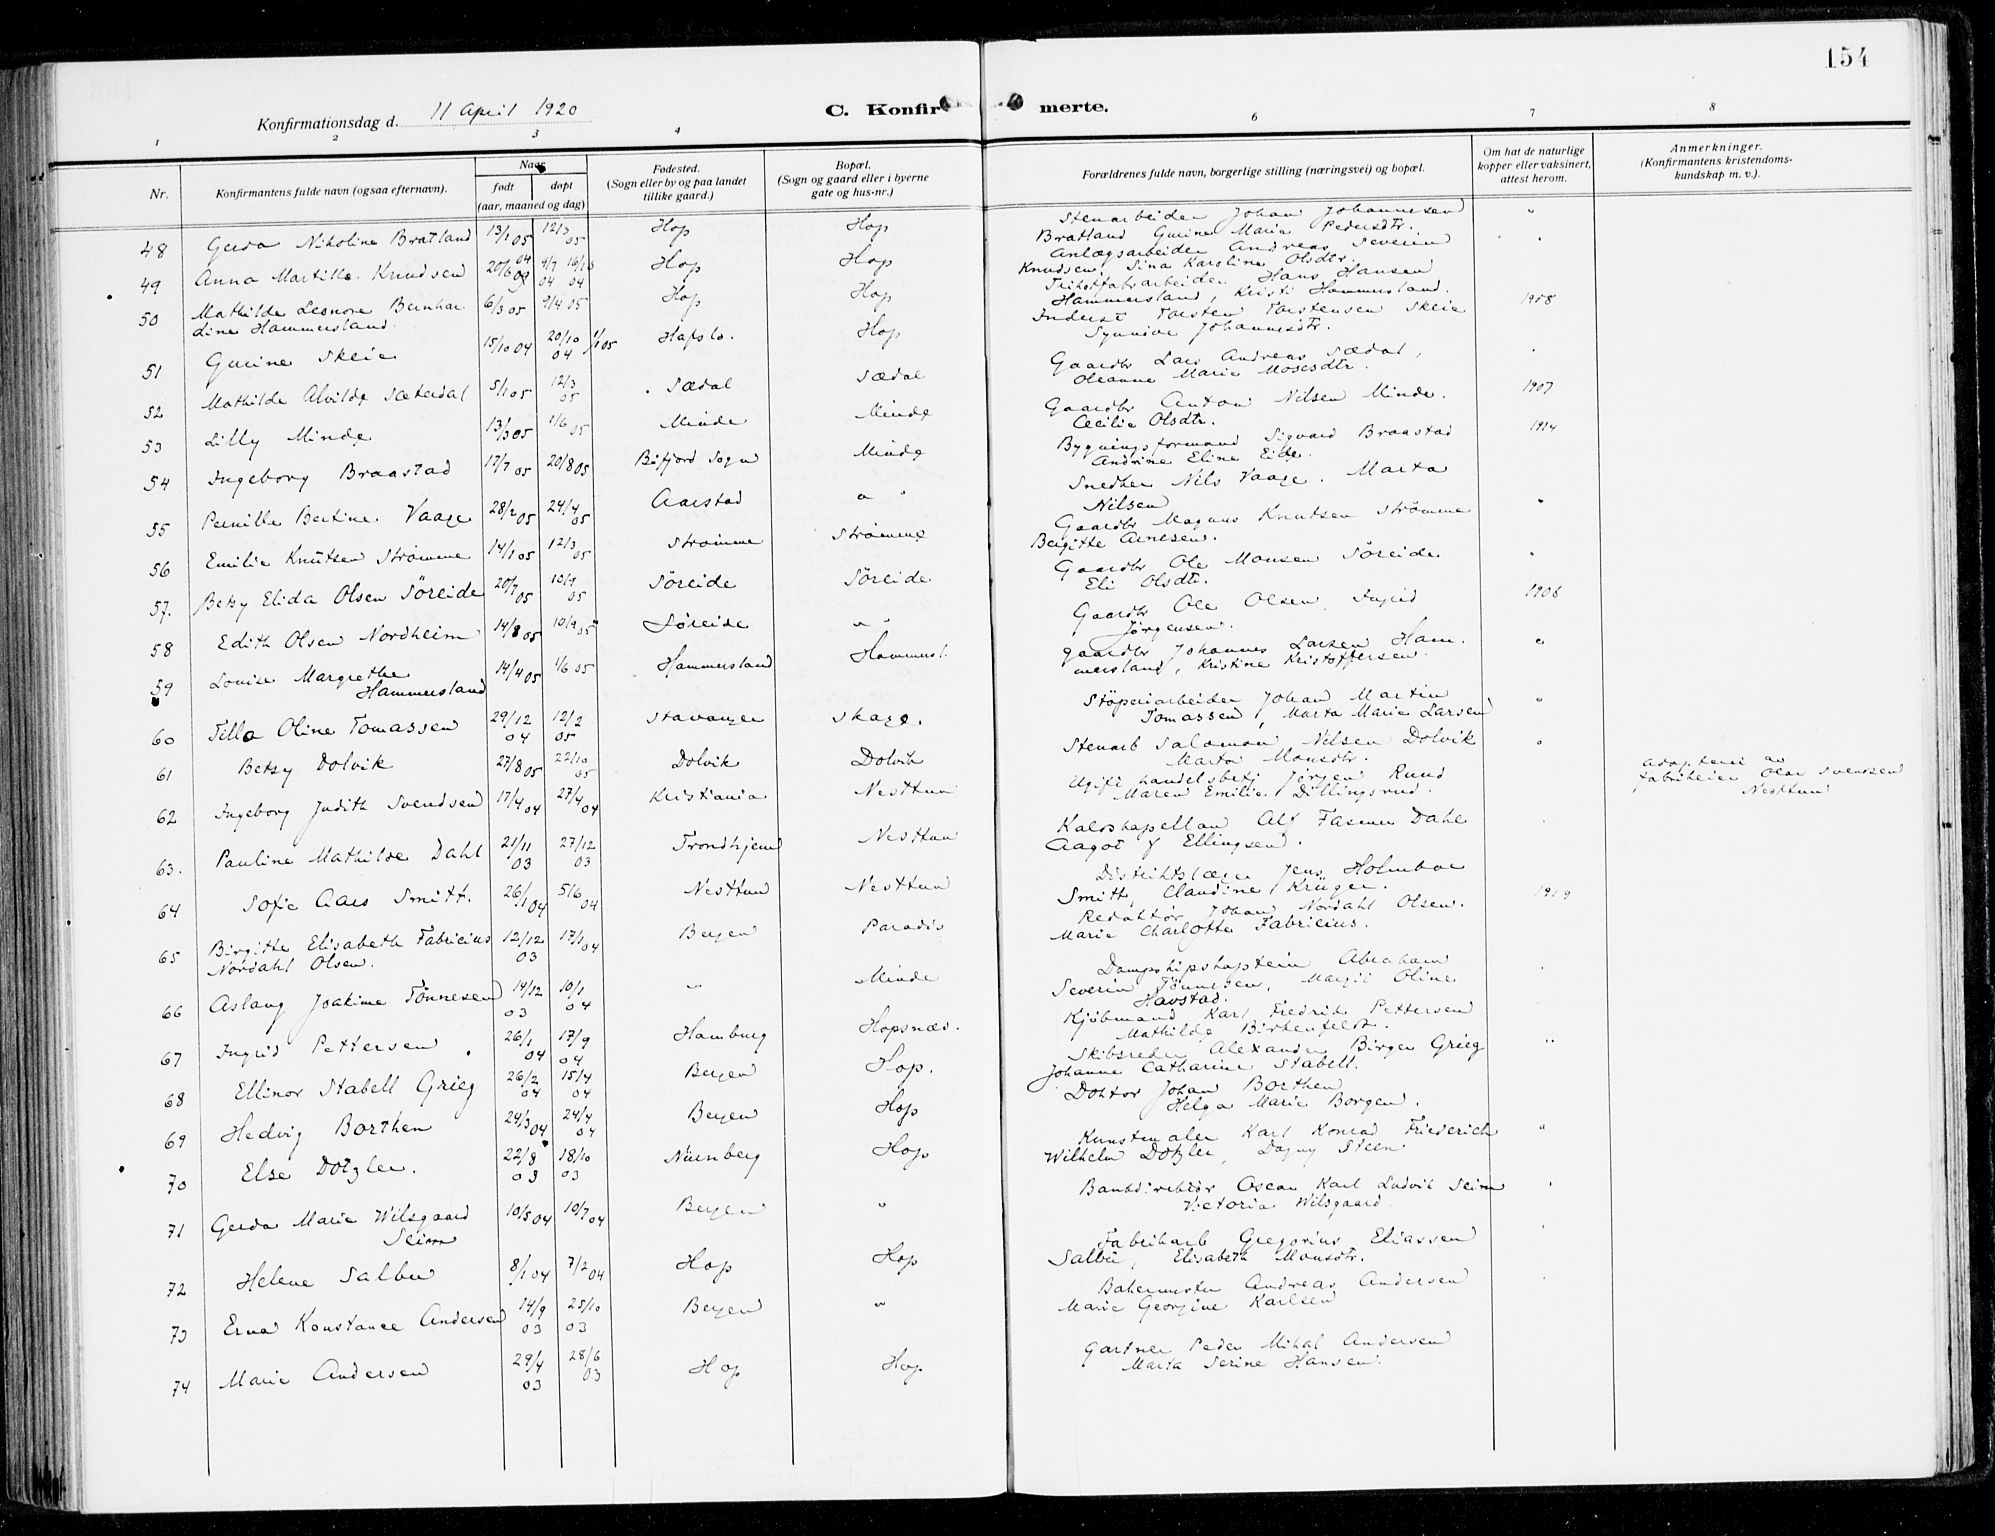 154
Konfirmationsdag d. 11 April 1920
C. Konfirmerte.
1 2 3 4 6 7 8
Nr. Konfirmantens fulde navn (ogsaa efternavn). Naar født døpt (aar, maaned og dag) Fødested. (Sogn eller by og paa landet tillike gaard.) Bopæl. (Sogn og gaard eller i byerne gate og hus-nr.) Forældrenes fulde navn, borgerlige stilling (næringsvei) og bopæl. Om hat de naturlige kopper eller vaksinert, attest herom. Anmerkninger. (Konfirmantens kristendomskundskap m. v.).
48 Gerda Nikoline Bratland 13/1 05 12/3 05 Hop Hop Stenarbeider Johan Johannesen
Bratland Gurine Marie Pedersdtr.
49 Anna Martille Knudsen 20/6 04 9/7 04 16/10 04 Hop Hop Anlægsarbeider Andreas Severin
Knudsen, Sina Karoline Olsdtr.
50 Mathilde Leonore Bernhar 6/3 05 9/4 05 Hop Hop Trikotfabrarbeider Hans Hansen
dine Hammersland. Hammersland, Kristi Hammersland. 1908
51 Gurine Skeie 15/10 04 20/10 04 1/1 05 Hafslo. Hop Inderst Torsten Torstensen Skeie
Synnøve Johannesdtr.
52 Mathilde Alvilde Sæterdal 5/1 05 12/3 05 Sædal Sædal Gaardbr Lars Andreas Sædal,
Oleanne Marie Mosesdtr.
53 Lilly Minde 13/3 05 1/6 05 Minde Minde Gaardbr Anton Nilsen Minde. 1907
Cecilie Olsdtr.
54 Ingeborg Braastad 17/7 05 20/8 05 Bøfjord Sogn Minde Bygningsformand Sigvard Braastad 1914
Andrine Eline Eide.
55 Pernille Bertine Vaage 28/2 05 24/4 05 Aarstad " " Snedker Nils Vaage. Marta
Nilsen
56 Emilie Knutsen Strømme 14/1 05 12/3 05 Strømme Strømme Gaardbr Magnus Knutsen Strømme "
Bergitte Arnesen.
57. Betsy Elida Olsen Söreide 20/7 05 10/9 05 Söreide Söreide Gaardbr Ole Monsen Söreide "
Eli Olsdtr.
58 Edith Olsen Nordheim 14/8 05 10/9 05 Søreide " " Gaardbr Ole Olsen, Ingrid 1906
Jørgensen.
59 Louise Margrethe 14/4 05 1/6 05 Hammersland Hammersl. gaardbr Johannes Larsen Ham "
Hammersland mersland, Kristine Kristoffersen.
60 Tilla Oline Tomassen 29/12 04 12/2 05 Stavanger Skage. Støperiarbeider Johan Martin "
Tomassen, Marta Marie Larsen
61 Betsy Dolvik 27/8 05 22/10 05 Dolvik Dolvik Stenarb Salomon Nilsen Dolvik "
Marta Monsdtr.
62 Ingeborg Judith Svendsen 17/4 04 27/4 04 Kristiania Nesttun Ugift handelsbetj Jørgen Ruud
Maren Emilie Dillingsrud.
Adopteret av
fabrikeier Olav Svendsen
Nesttun
63. Pauline Mathilde Dahl 21/11 03 27/12 03 Trondhjem Nesttun Kaldskapellan Alf Fasmer Dahl
Aagot f Ellingsen.
64 Sofie Aars Smitt. 26/1 04 5/6 04 Nesttun Nesttun Distriktslæge Jens Holmboe
Smitt, Claudine Krüger.
65 Birgitte Elisabeth Fabricius 12/12 03 17/1 04 Bergen Paradis Redaktør Johan Nordahl Olsen. 1919
Nordahl Olsen. Marie Charlotte Fabricius.
66 Aslaug Joakime Tönnesen 14/12 03 10/1 04 " Minde Dampskipskaptein Abraham
Severin Tönnesen, Margit Oline
Havstad.
67 Ingrid Pettersen 26/1 04 17/9 04 Hamburg Hopsnæs. Kjøbmand Karl Fredrik Pettersen
Mathilde Birkenfeldt.
68 Ellinor Stabell Grieg 26/2 04 15/4 04 Bergen Hop. Skibsreder Alexander Birger Grieg "
Johanne Catharine Stabell.
69 Hedvig Borthen 24/3 04 24/4 04 Bergen Hop Doktor Johan Borthen
Helga Marie Borgen.
70 Else Dotzler. 22/8 03 18/10 03 Nürnberg Hop Kunstmaler Karl Konrad Friederich "
Wilhelm Dotzler, Dagny Steen
71 Gerda Marie Wilsgaard 10/5 04 10/7 04 Bergen " Bankdirektør Oscar Karl Ludvik Seim
Seim Victoria Wilsgaard.
72 Helene Salbu 8/1 04 7/2 04 Hop Hop Fabrikarb Gregorius Eliassen
Salbu, Elisabeth Monsdtr.
73 Erna Konstance Andersen 14/9 03 25/10 03 Bergen " Bakermester Andreas Andersen
Marie Georgine Karlsen
74 Marie Andersen 29/4 03 28/6 03 Hop Hop Gartner Peder Mikal Andersen
Marta Serine Hansen.